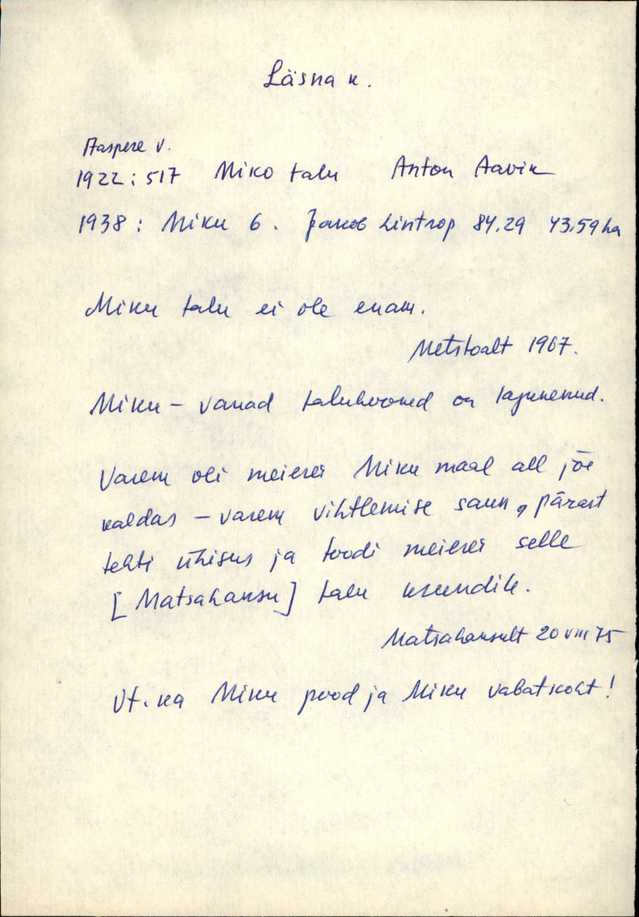 Läsna k.
Aaspere v.
1922: 517 Miko talu Anton Aavik
1938: Miku 6. Jakob Lintrop 84.29 43,59 ha
Miku talu ei ole enam.
Metstoalt 1967.
Miku – vanad taluhooned on lagunenud.
Varem oli meierei Miku maal all jõe
kaldas – varem vihtlemise saun, pärast
tehti ühisus ja toodi meierei selle
[Matsahansu] talu krundile.
Matsahansult 20 VIII 75
Vt. ka Miku pood ja Miku vabatkoht!